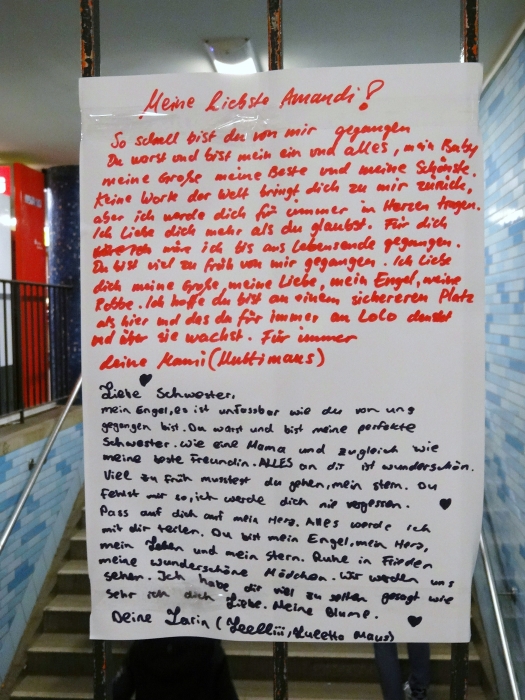 Meine Liebste Amandi!
So schnell bist du von mir gegangen
Du warst und bist mein ein und alles, mein Baby
meine Große meine Beste und meine Schönste.
Keine Worte der Welt bringt dich zu mir zurück,
aber ich werde dich für immer in Herzen tragen.
Ich Liebe dich mehr als du glaubst. Für dich
wäre ich bis ans Lebensende gegangen.
Du bist viel zu früh von mir gegangen. Ich Liebe
dich meine Große, meine Liebe, mein Engel, meine
Robbe. Ich hoffe du bist an einem sichereren Platz
als hier und das du für immer an Lolo denkst
und über sie wachst. Für immer
deine Mami (Muttimaus)
Liebe Schwester,
mein Engel, es ist unfassbar wie du von uns
gegangen bist. Du warst und bist meine perfekte
Schwester. Wie eine Mama und zugleich wie
meine beste Freundin. ALLES an dir ist wunderschön.
Viel zu früh musstest du gehen, mein Stern. Du
fehlst mir so, ich werde dich nie vergessen.
Pass auf dich auf mein Herz. Alles werde ich
mit dir teilen. Du bist mein Engel, mein Herz,
mein Leben und mein Stern. Ruhe in Frieden
meine wunderschöne Mädchen. Wir werden uns
sehen. Ich habe dir viel zu selten gesagt wie
sehr ich dich Liebe. Meine Blume.
Deine Larin (Leelliii, Luletta Maus)